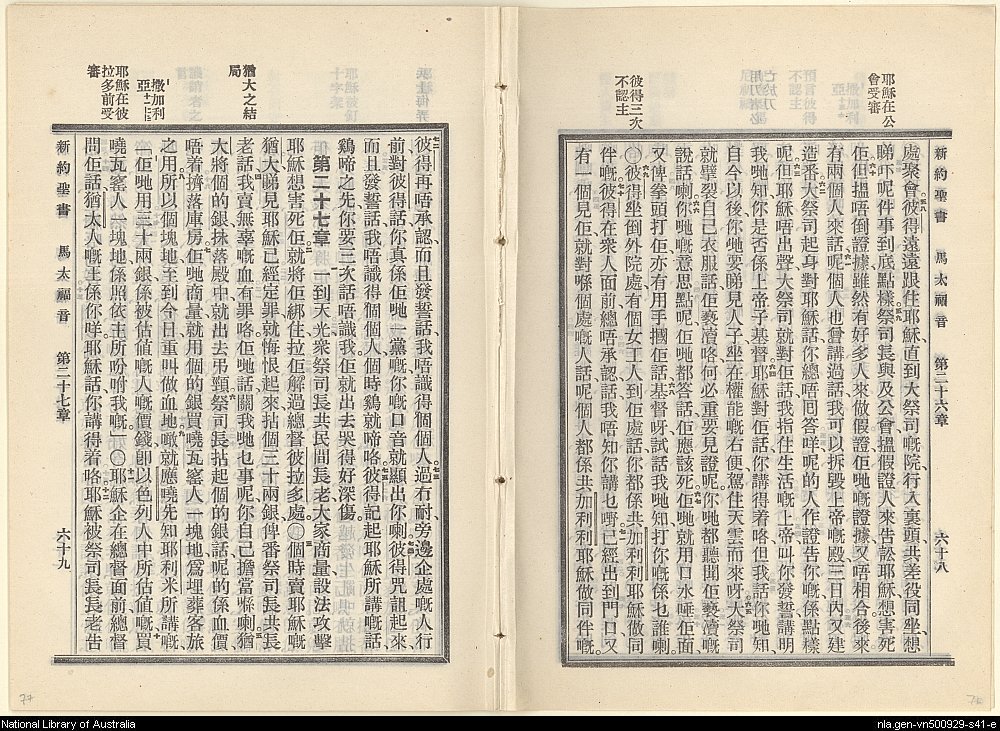 耶穌在公
會受審
彼得三次
不認主
新約聖書 馬太福音 第二十六章 六十八
處聚會彼得遠遠跟住耶穌、直到大祭司嘅院、行入裏頭、共差役同坐、想
睇吓呢件事到底點樣。祭司長與及公會搵假證人來告訟耶穌、想害死
佢、但搵唔倒證據、雖然有好多人來做假證、佢哋嘅證據又唔相合。後來
有兩個人來話、呢個人也曾講過話、我可以拆毁上帝嘅殿、三日內又建
造番。大祭司起身對耶穌話、你總唔囘答咩、呢的人作證告你嘅係點樣
呢、但耶穌唔出聲、大祭司就對佢話、我指住生活嘅上帝、叫你發誓講明
我哋知、你是否係上帝子基督。耶穌對佢話、你講得着咯、但我話你哋知、
自今以後、你哋要睇見人子坐在權能嘅右便、駕住天雲而來呀。大祭司
就擘裂自己衣服話、佢褻瀆咯、何必重要見證呢、你哋都聽聞佢褻瀆嘅
說話喇。你哋嘅意思點呢、佢哋都答話、佢應該死。佢哋就用口水唾佢面、
又俾拳頭打佢、亦有用手摑佢話、基督呀、試話我哋知、打你嘅係乜誰喇。
〇彼得坐倒外院處、有個女工人到佢處話、你都係共加利利耶穌做同
伴嘅。彼得在衆人面前總唔承認、話、我唔知你講乜嘢。已經出到門口、又
有一個見佢、就對喺個處嘅人話、呢個人都係共加利利耶穌做同伴嘅。
猶大之結
局
撒加利
亞十一:十三
耶穌在彼
拉多前受
審
彼得再唔承認、而且發誓話、我唔識得個個人。過冇耐、旁邊企處嘅人行
前對彼得話、你真係佢哋一黨嘅、你嘅口音就顯出你喇。彼得咒詛起來、
而且發誓話、我唔識得個個人、個時鷄就啼咯。彼得記起耶穌所講嘅話、
鷄啼之先、你要三次話唔識我、佢就出去哭得好深傷。
第二十七章 一到天光、衆祭司長共民間長老大家商量設法攻擊
耶穌、想害死佢、就將佢綁住、拉佢解過總督彼拉多處。〇個時賣耶穌嘅
猶大、睇見耶穌已經定罪、就悔恨起來、拈個三十兩銀俾番祭司長共長
老、話、我賣無辜嘅血有罪咯、佢哋話、關我哋乜事呢、你自己擔當喺喇。猶
大將個的銀抹落殿中、就出去弔頸。祭司長拈起個的銀話、呢的係血價、
唔着擠落庫房。佢哋商量、就用個的銀買嘵瓦窰人一塊地、爲埋葬客旅
之用。所以個塊地至到今日、重叫做血地。噉就應嘵先知耶利米所講嘅
話、佢哋用三十兩銀、係被估值嘅人嘅價錢、卽以色列人中所估值嘅、買
嘵瓦窰人一塊地、係照依主所吩咐我嘅。〇耶穌企在總督面前、總督
問佢話、猶太人嘅王係你咩、耶穌話、你講得着咯。耶穌被祭司長長老告
新約聖書 馬太福音 第二十七章 六十九
77
78
National Library of Australia
nla.gen-vn500929-s41-e